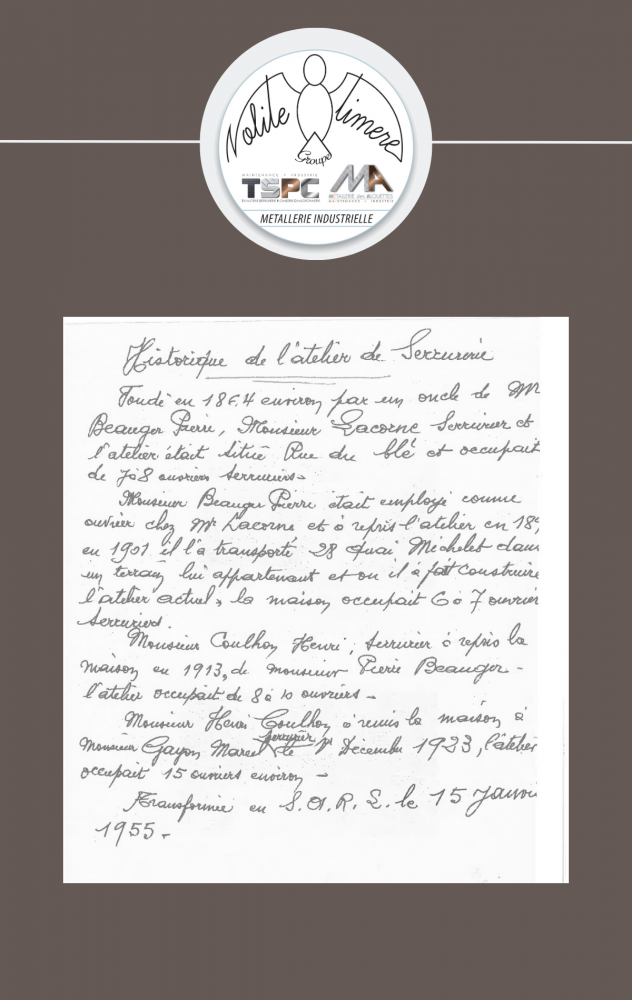 Nolite timere
Groupe
MAINTENANCE & INDUSTRIE
TSPC MA
METALLERIE des MOUETTES
MAINTENANCE & INDUSTRIE
METALLERIE INDUSTRIELLE
Historique de l'atelier de Serrurerie
Fondé en environ par un oncle de Mr
Beauger Pierre, Monsieur Lacorne Serrurier et
l'atelier était situé Rue du blé et occupait
de 7 à 8 ouvriers serruriers.
Monsieur Beauger Pierre était employé comme
ouvrier chez Mr Lacorne et à repris l'atelier en 18
en 1901 il l'a transporté 28 Quai Michelet dans
un terrain lui appartenant et ou il à fait construire
l'atelier actuel, la maison occupait 6 à 7 ouvrier
serruriers.
Monsieur Coulhon Henri, serrurier à repris la
maison en 1913, de monsieur Pierre Beauger -
l'atelier occupait de 8 à 10 ouvriers -
Monsieur Henri Coulhon à remis la maison à
Monsieur Gayon Marcel serrurier le 1er Décembre 1923, l'atelier
occupait 15 ouvriers environ -
Transformée en S.A.R.L. le 15 Janvi
1955 -